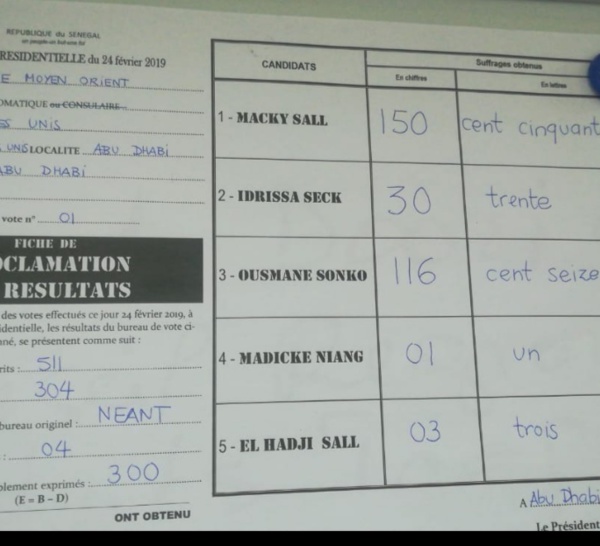 REPUBLIQUE du SENEGAL
un peuple un but une foi
RESIDENTIELLE du 24 février 2019
E MOYEN ORIENT
OMATIQUE ou CONSULAIRE
ES UNIS
UNIS LOCALITE ABU DHABI
ABU DHABI
vote n° 01
FICHE DE
OCLAMATION
RESULTATS
des votes effectués ce jour 24 février 2019, à
identielle, les résultats du bureau de vote ci-
né, se présentent comme suit :
rits : 511
304
bureau originel : NEANT
: 04
lement exprimés : 300
(E = B – D)
ONT OBTENU
CANDIDATS
Suffrages obtenus
En chiffres
En lettres
1 - MACKY SALL 150 cent cinquant
2 - IDRISSA SECK 30 trente
3 - OUSMANE SONKO 116 cent seize
4 - MADICKE NIANG 01 un
5 - EL HADJI SALL 03 trois
A Abu Dhabi
Le Président